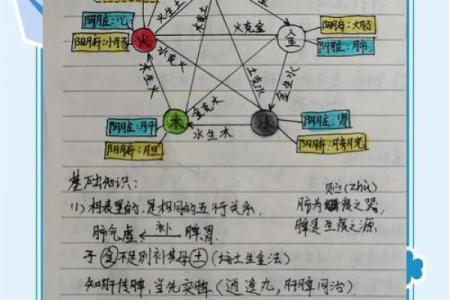 阴脏:心
火生土
火克金
阴腑:大肠
阳腑:小肠
火
金
阴脏:肺
水克火
土克水
木生火
金生水
金克木
阴脏:肝
木
水
阴脏:肾
阳腑:胆
水生木
阳腑:膀胱
基础知识:
贮(zhù)
(1)相表里的,是相同的五行关系.
肺为贮痰之器
肺气虚 ← 补 脾胃
脾是生痰之源
子(金)不足则补其母(土)(培土生金法)
知肝传脾,当先实脾(逍遥丸,肝脾同治)